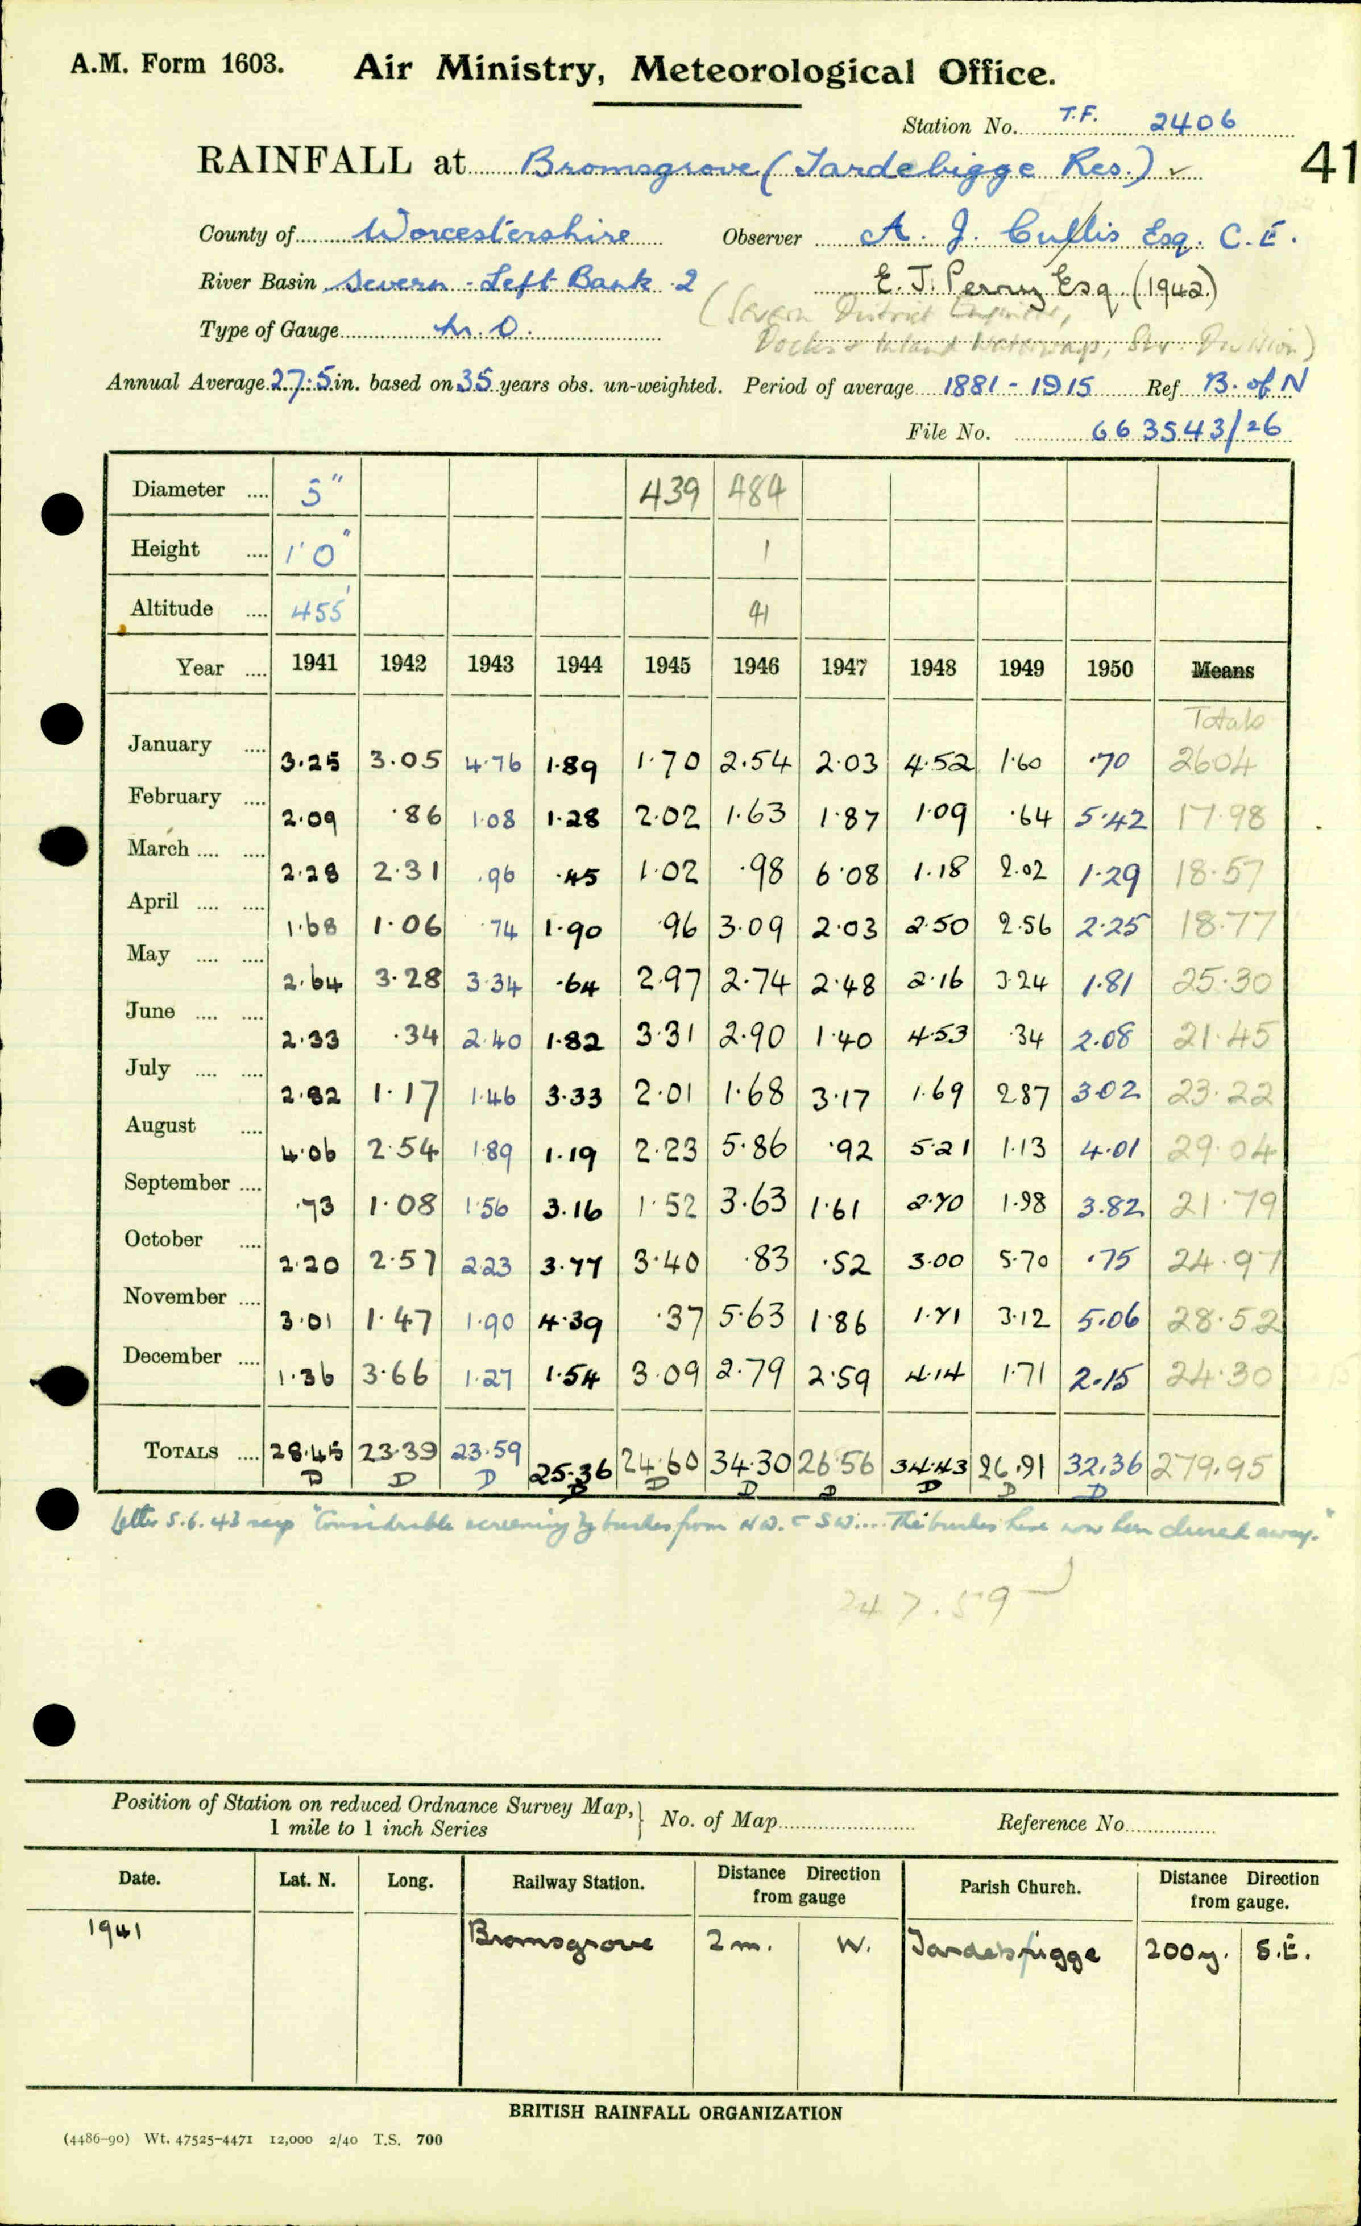 A.M. Form 1603. Air Ministry, Meteorological Office.
Station No. T.F. 2406
RAINFALL at Bromsgrove (Tardebigge Res.) ✓ 41
County of Worcestershire Observer A. J. Cullis Esq. C.E.
River Basin Severn - Left Bank 2 E. J. Perry Esq. (1942)
(Severn District Engineer,
Type of Gauge M.O. Docks & Inland Waterways, Division)
Annual Average 27.5 in. based on 35 years obs. un-weighted. Period of average 1881 - 1915 Ref B. of N
File No. 663543/26
Diameter .... 5" 439 484
Height .... 1' 0" 1
Altitude .... 455' 41
Year .... 1941 1942 1943 1944 1945 1946 1947 1948 1949 1950 Means
Totals
January .... 3.25 3.05 4.76 1.89 1.70 2.54 2.03 4.52 1.60 .70 2604
February .... 2.09 .86 1.08 1.28 2.02 1.63 1.87 1.09 .64 5.42 17.98
March .... .... 2.28 2.31 .96 .45 1.02 .98 6.08 1.18 2.02 1.29 18.57
April .... .... 1.68 1.06 .74 1.90 .96 3.09 2.03 2.50 2.56 2.25 18.77
May .... .... 2.64 3.28 3.34 .64 2.97 2.74 2.48 2.16 3.24 1.81 25.30
June .... .... 2.33 .34 2.40 1.82 3.31 2.90 1.40 4.53 .34 2.08 21.45
July .... .... 2.82 1.17 1.46 3.33 2.01 1.68 3.17 1.69 2.87 3.02 23.22
August .... 4.06 2.54 1.89 1.19 2.23 5.86 .92 5.21 1.13 4.01 29.04
September .... .73 1.08 1.56 3.16 1.52 3.63 1.61 2.70 1.98 3.82 21.79
October .... 2.20 2.57 2.23 3.77 3.40 .83 .52 3.00 5.70 .75 24.97
November .... 3.01 1.47 1.90 4.39 .37 5.63 1.86 1.71 3.12 5.06 28.52
December .... 1.36 3.66 1.27 1.54 3.09 2.79 2.59 4.14 1.71 2.15 24.30
TOTALS .... 28.45 23.39 23.59 25.36 24.60 34.30 26.56 34.43 26.91 32.36 279.95
D D D D D D D D D D
Letter 5.6.43 says "Considerable screening by bushes from NW. & SW.... The bushes have now been cleared away."
247.59
Position of Station on reduced Ordnance Survey Map, } No. of Map Reference No.
1 mile to 1 inch Series
Date. Lat. N. Long. Railway Station. Distance Direction from gauge Parish Church. Distance Direction from gauge.
1941 Bromsgrove 2 m. W. Tardebigge 200 y. S.E.
BRITISH RAINFALL ORGANIZATION
(4486-90) Wt. 47525-4471 12,000 2/40 T.S. 700